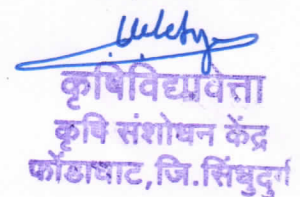 कृषिविद्यावेत्ता
कृषि संशोधन केंद्र
फोंडाघाट, जि.सिंधुदुर्ग